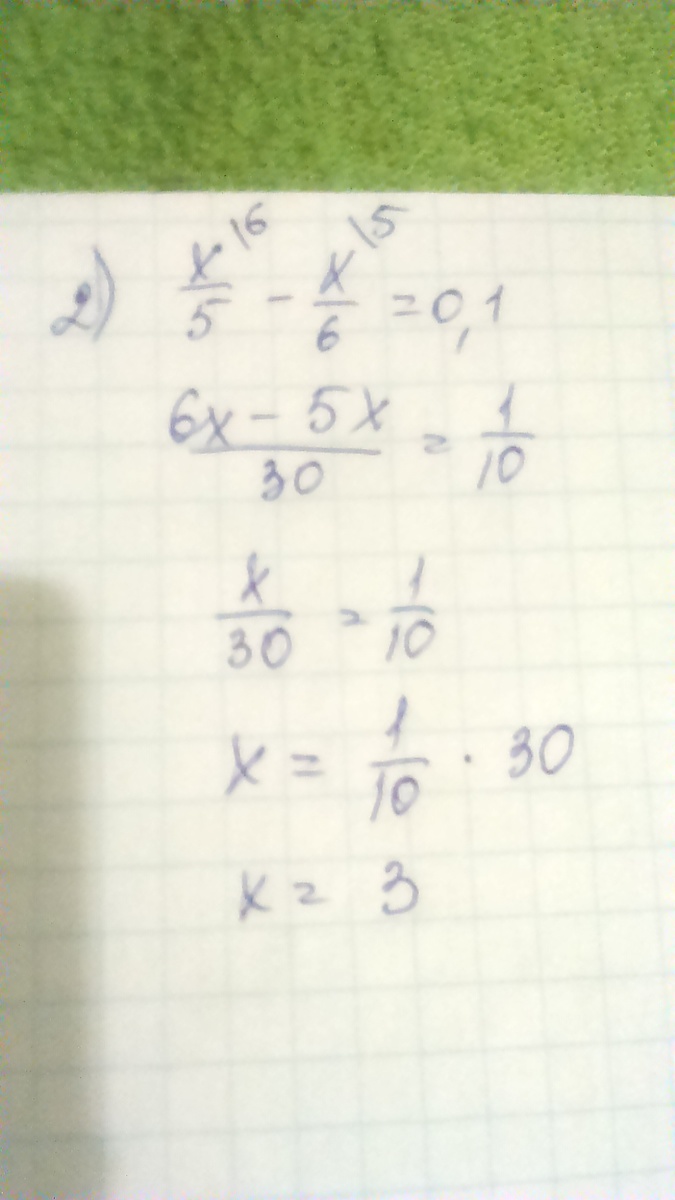 2) x/5 \6 - x/6 \5 = 0,1
6x - 5x / 30 = 1/10
x/30 = 1/10
x = 1/10 · 30
x = 3